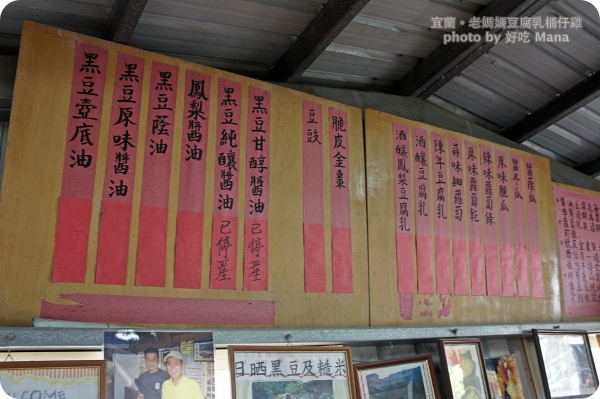 宜蘭。老媽媽豆腐乳桶仔雞
photo by 好吃 Mana
黑豆壺底油
黑豆原味醬油
黑豆蔭油
鳳梨醬油
黑豆純釀醬油 已停產
黑豆甘醇醬油 已停產
豆豉
脆皮金棗
酒釀鳳梨豆腐乳
酒釀豆腐乳
陳年豆腐乳
蒜味細蘿蔔
原味蘿蔔乾
辣味蘿蔔條
原味脆瓜
日晒黑豆及糙米